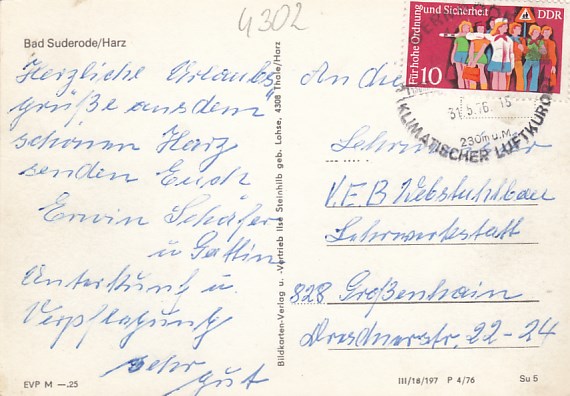 4302
Bad Suderode/Harz
Herzliche Urlaubs
grüße aus dem
schönen Harz
senden Euch
Erwin Schäfer
u Gattin
Unterkunft u.
Verpflegung
sehr
gut
EVP M –.25
Bildkarten-Verlag u. -Vertrieb Ilse Steinhilb geb. Lohse, 4308 Thale/Harz
Für hohe Ordnung und Sicherheit
DDR
10
31.5.76
15
230m ü.M.
KLIMATISCHER LUFTKURO
An die
VEB Webstuhlbau
Lehrwerkstatt
828 Großenhain
Dresdnerstr. 22–24
III/18/197 P 4/76
Su 5